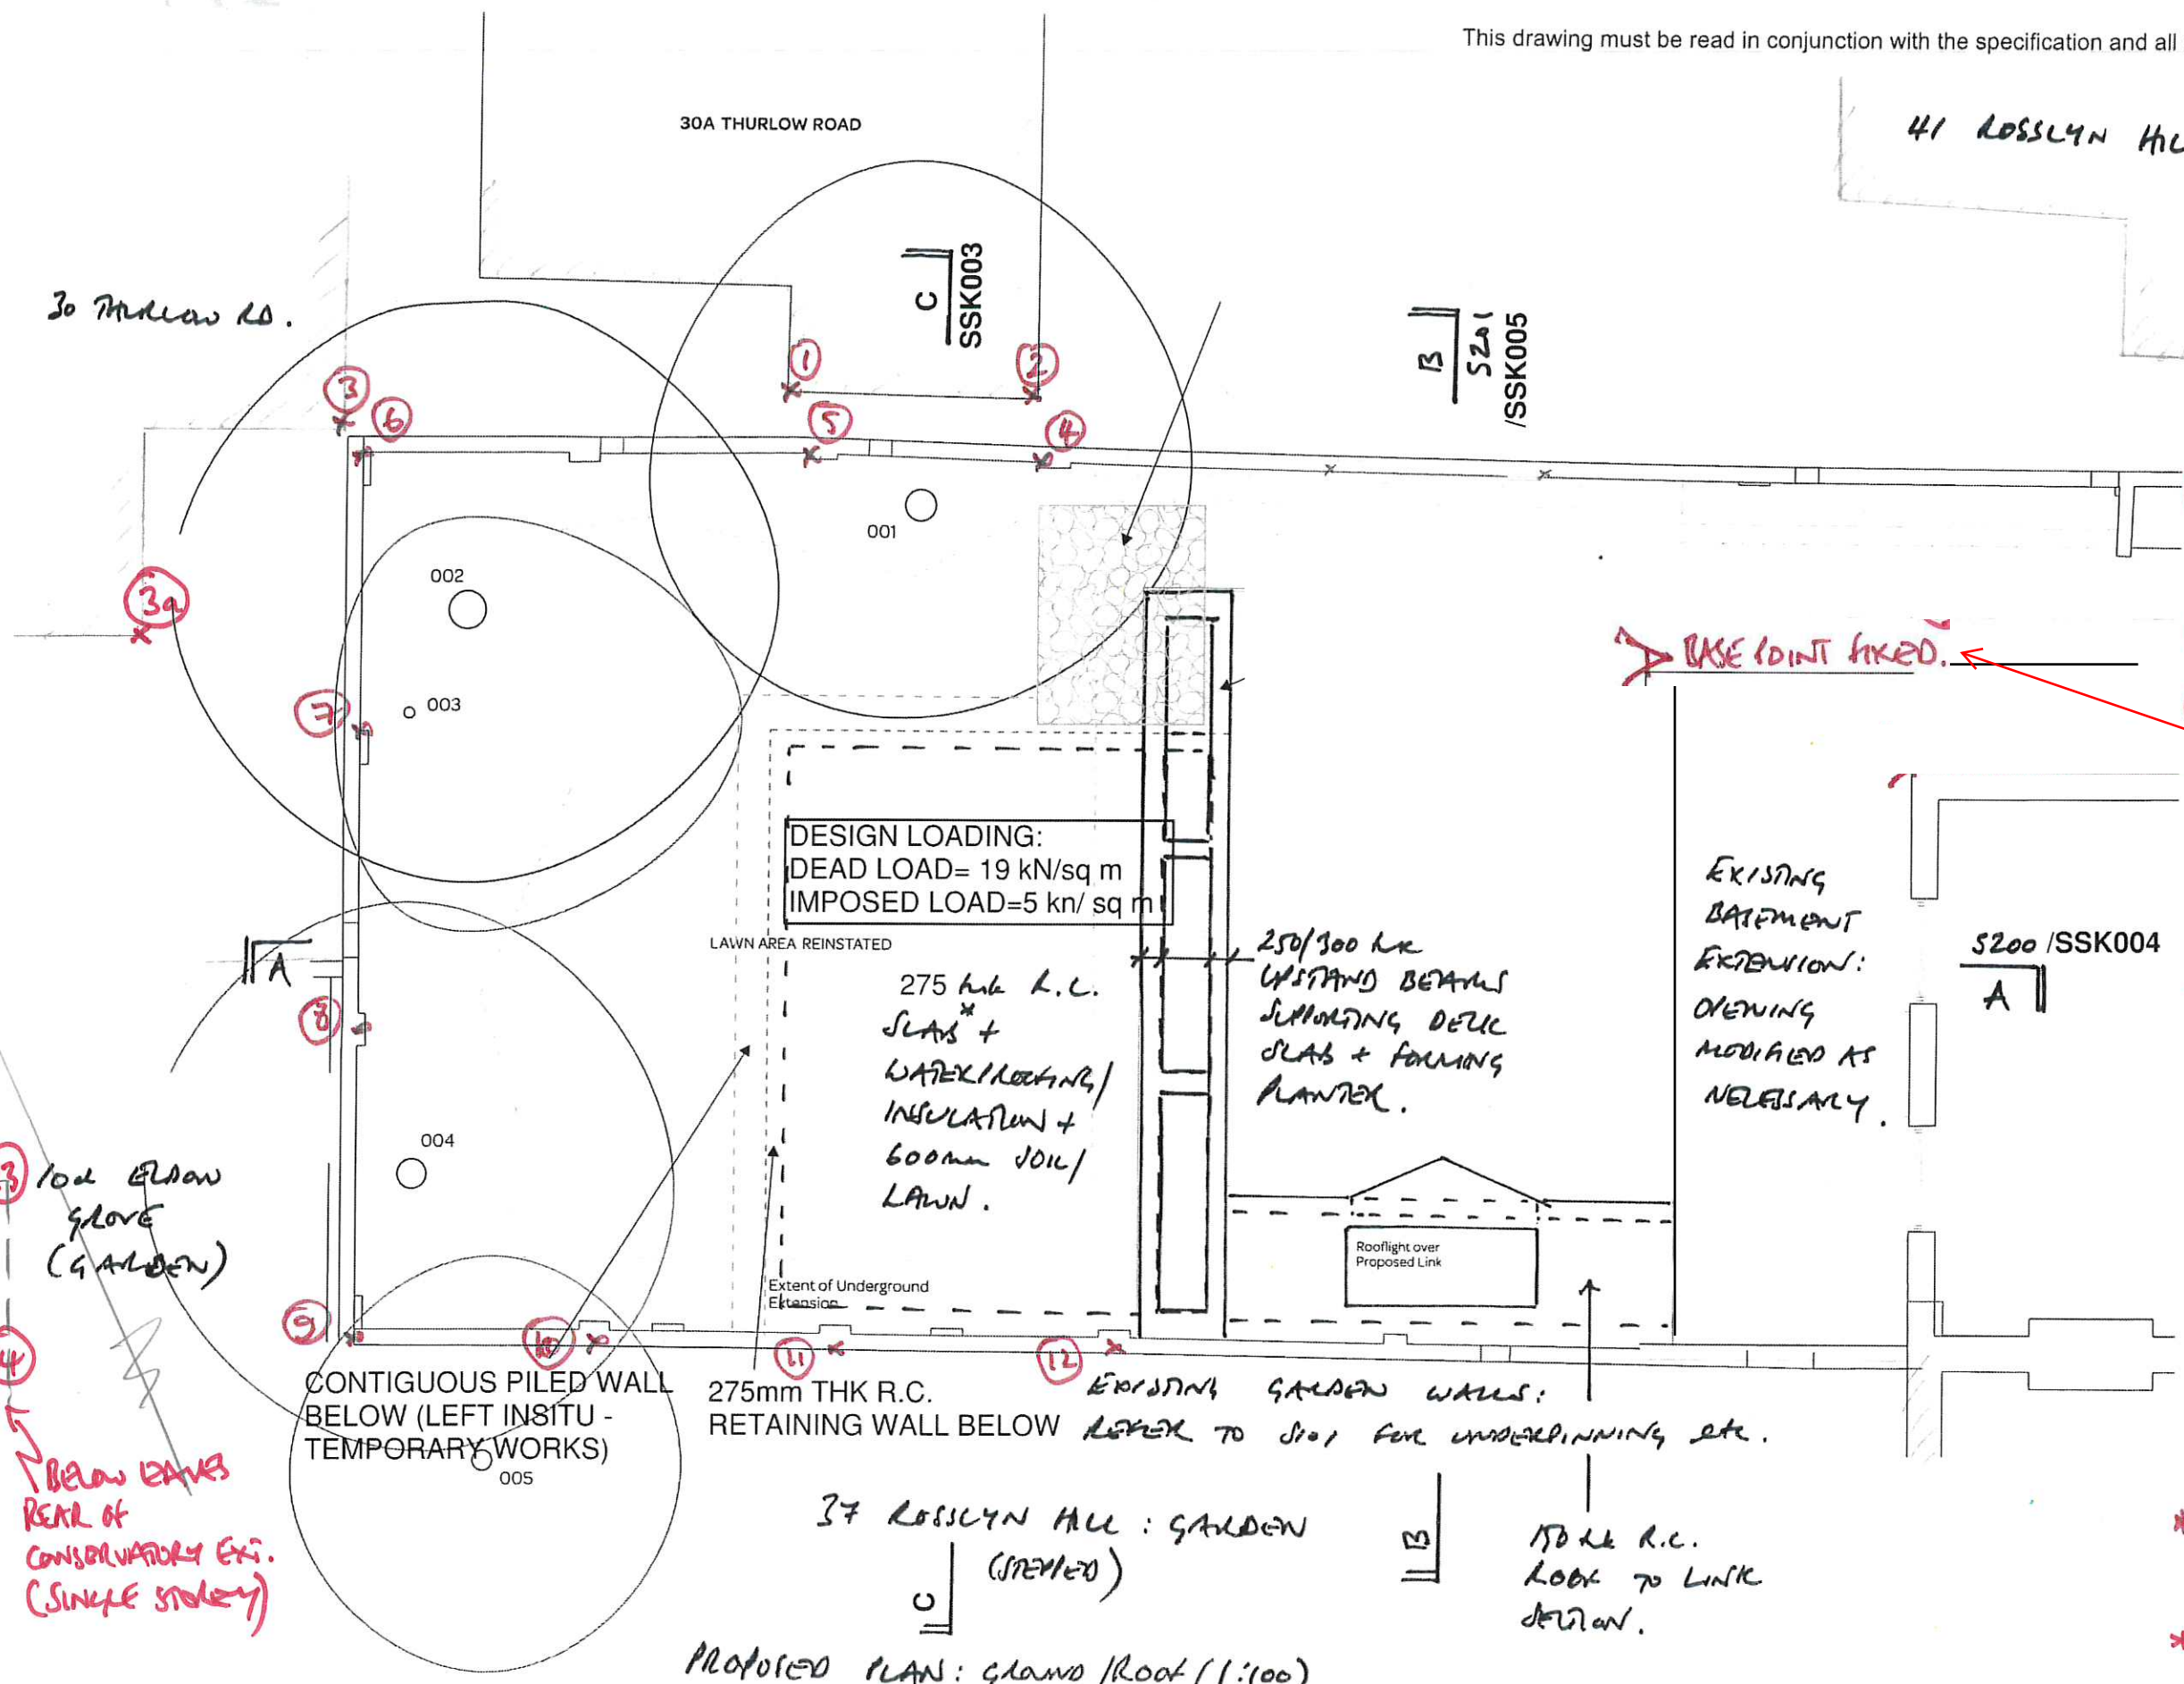 This drawing must be read in conjunction with the specification and all
30A THURLOW ROAD
41 ROSSLYN HIL
30 THURLOW RD.
C
SSK003
B
S201
/SSK005
1
2
3
6
5
4
001
002
3a
003
7
BASE POINT FIXED.
DESIGN LOADING:
DEAD LOAD= 19 kN/sq m
IMPOSED LOAD=5 kn/ sq m
LAWN AREA REINSTATED
275 thk R.C.
SLAB* +
WATERPROOFING/
INSULATION +
600mm SOIL/
LAWN.
250/300 thk
UPSTAND BEAMS
SUPPORTING DECK
SLAB + FORMING
PLANTER.
EXISTING
BASEMENT
EXTENSION:
OPENING
MODIFIED AS
NECESSARY.
S200 /SSK004
A
A
8
004
3
10a ELDON
GROVE
(GARDEN)
Rooflight over
Proposed Link
Extent of Underground
Extension
9
10
11
12
4
CONTIGUOUS PILED WALL
BELOW (LEFT INSITU -
TEMPORARY WORKS)
275mm THK R.C.
RETAINING WALL BELOW
EXISTING GARDEN WALLS:
REFER TO S101 FOR UNDERPINNING etc.
005
BELOW EAVES
REAR OF
CONSERVATORY EXT.
(SINGLE STOREY)
37 ROSSLYN HILL : GARDEN
(STEPPED)
C
B
150 thk R.C.
ROOF TO LINK
SECTION.
PROPOSED PLAN: GROUND /ROOF (1:100)